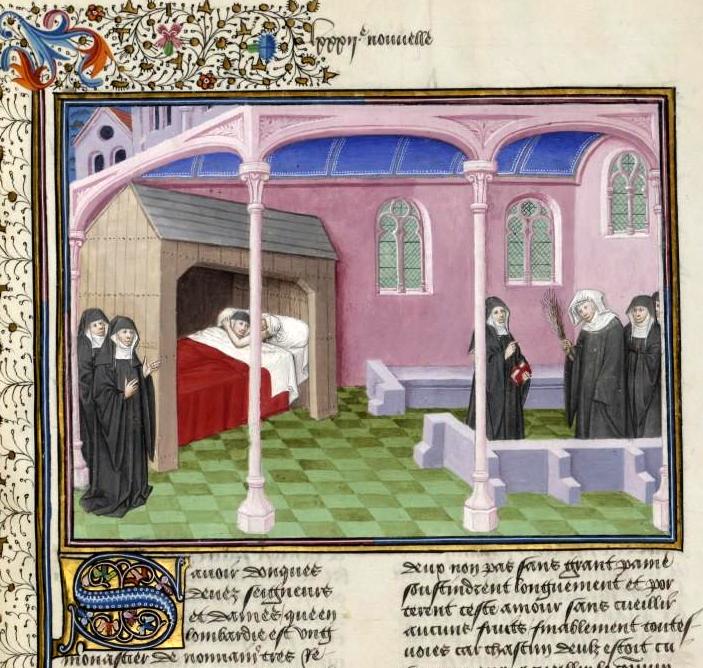 lxxxii^e nouvelle
Sauoir donques
deuez seigneurs
et dames que en
lombardie est ung
monastier de nonnains tres
deux non pas sans grant paine
soustindrent longuement et por
terent ceste amour sans cueillir
aucuns fruits finablement toutes
uoies car chascun deulx estoit cu